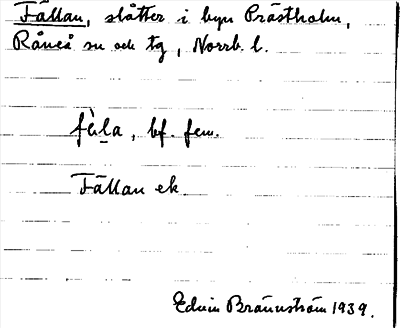 Fällan, slåtter i byn Prästholm,
Råneå sn och tg, Norrb. l.
fὲla, bf. fem.
Fällan ek
Edvin Brännström 1939.